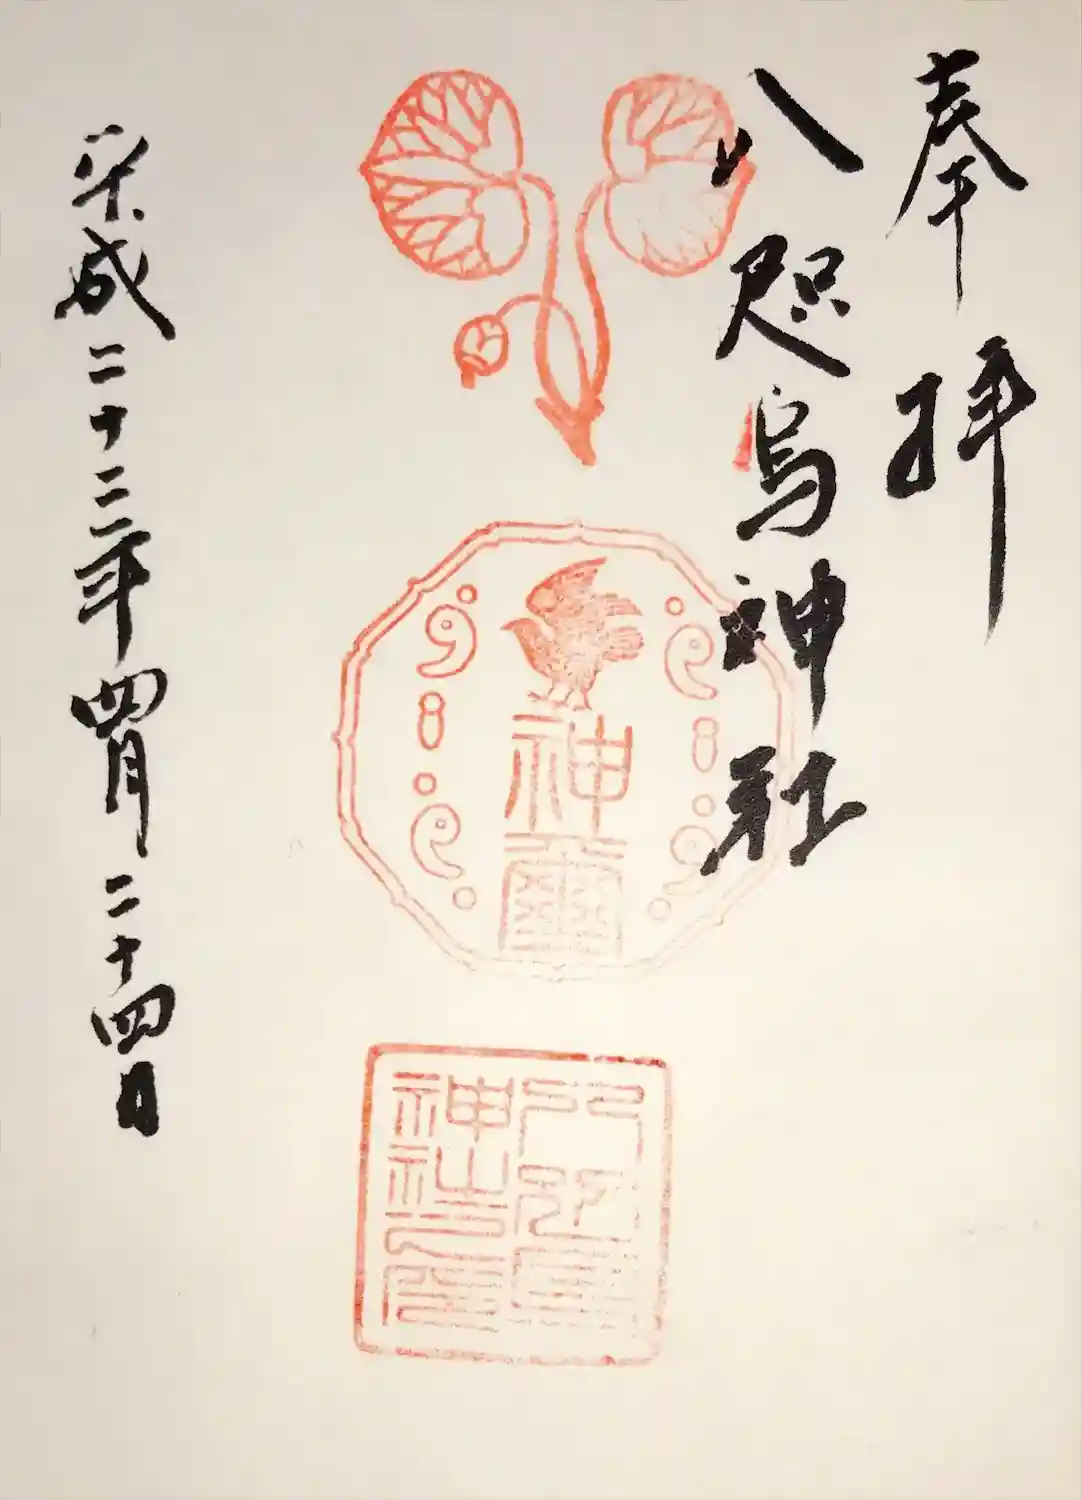 奉拝
八咫烏神社
神璽
八咫烏
神社之印
平成二十三年四月二十四日